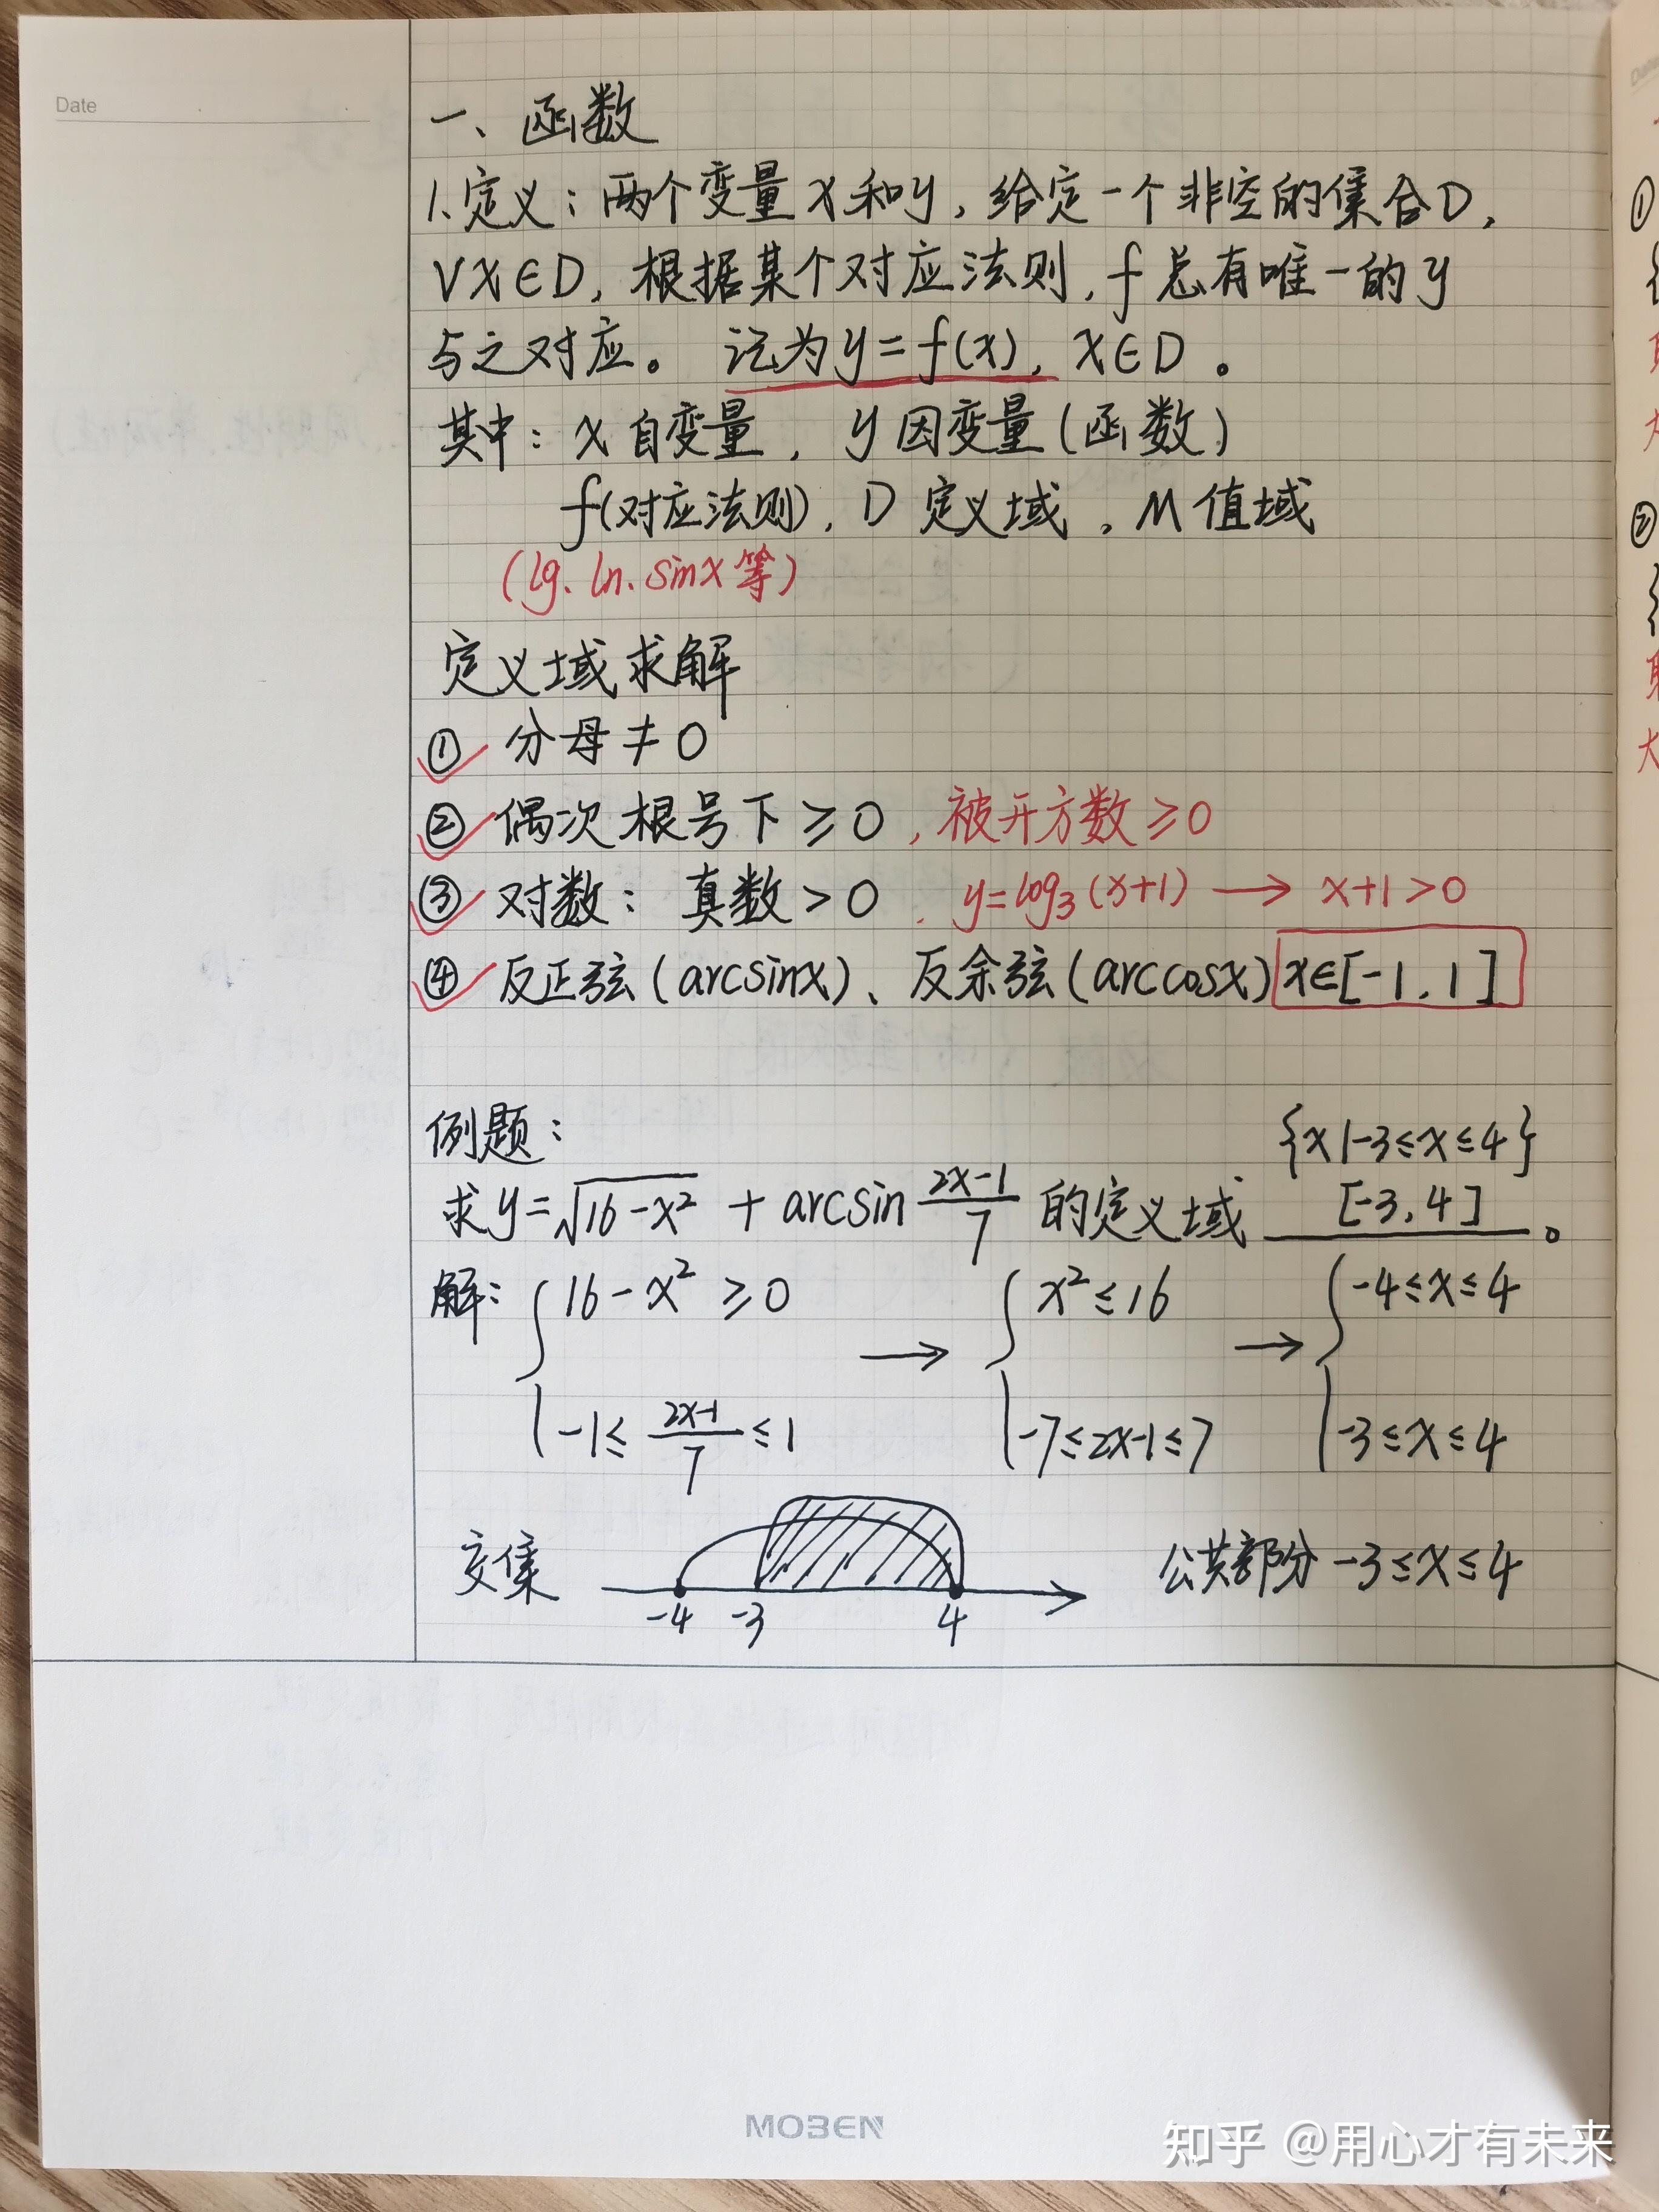 Date
一、函数
1.定义：两个变量x和y，给定一个非空的集合D，
∀x∈D，根据某个对应法则，f总有唯一的y
与之对应。 记为y=f(x)，x∈D。
其中：x自变量，y因变量(函数)
f(对应法则)，D定义域，M值域
(lg. ln. sinx等)
定义域求解
① 分母≠0
② 偶次根号下≥0，被开方数≥0
③ 对数：真数>0，y=log₃(x+1) → x+1>0
④ 反正弦(arcsinx)、反余弦(arccosx) x∈[-1,1]
例题：
{x|-3≤x≤4}
求y=√(16-x²) + arcsin (2x-1)/7 的定义域 [-3,4]。
解：{ 16-x²≥0 → { x²≤16 → { -4≤x≤4
-1≤ (2x-1)/7 ≤1 -7≤2x-1≤7 -3≤x≤4
交集 公共部分 -3≤x≤4
-4 -3 4
MOBEN
知乎 @用心才有未来